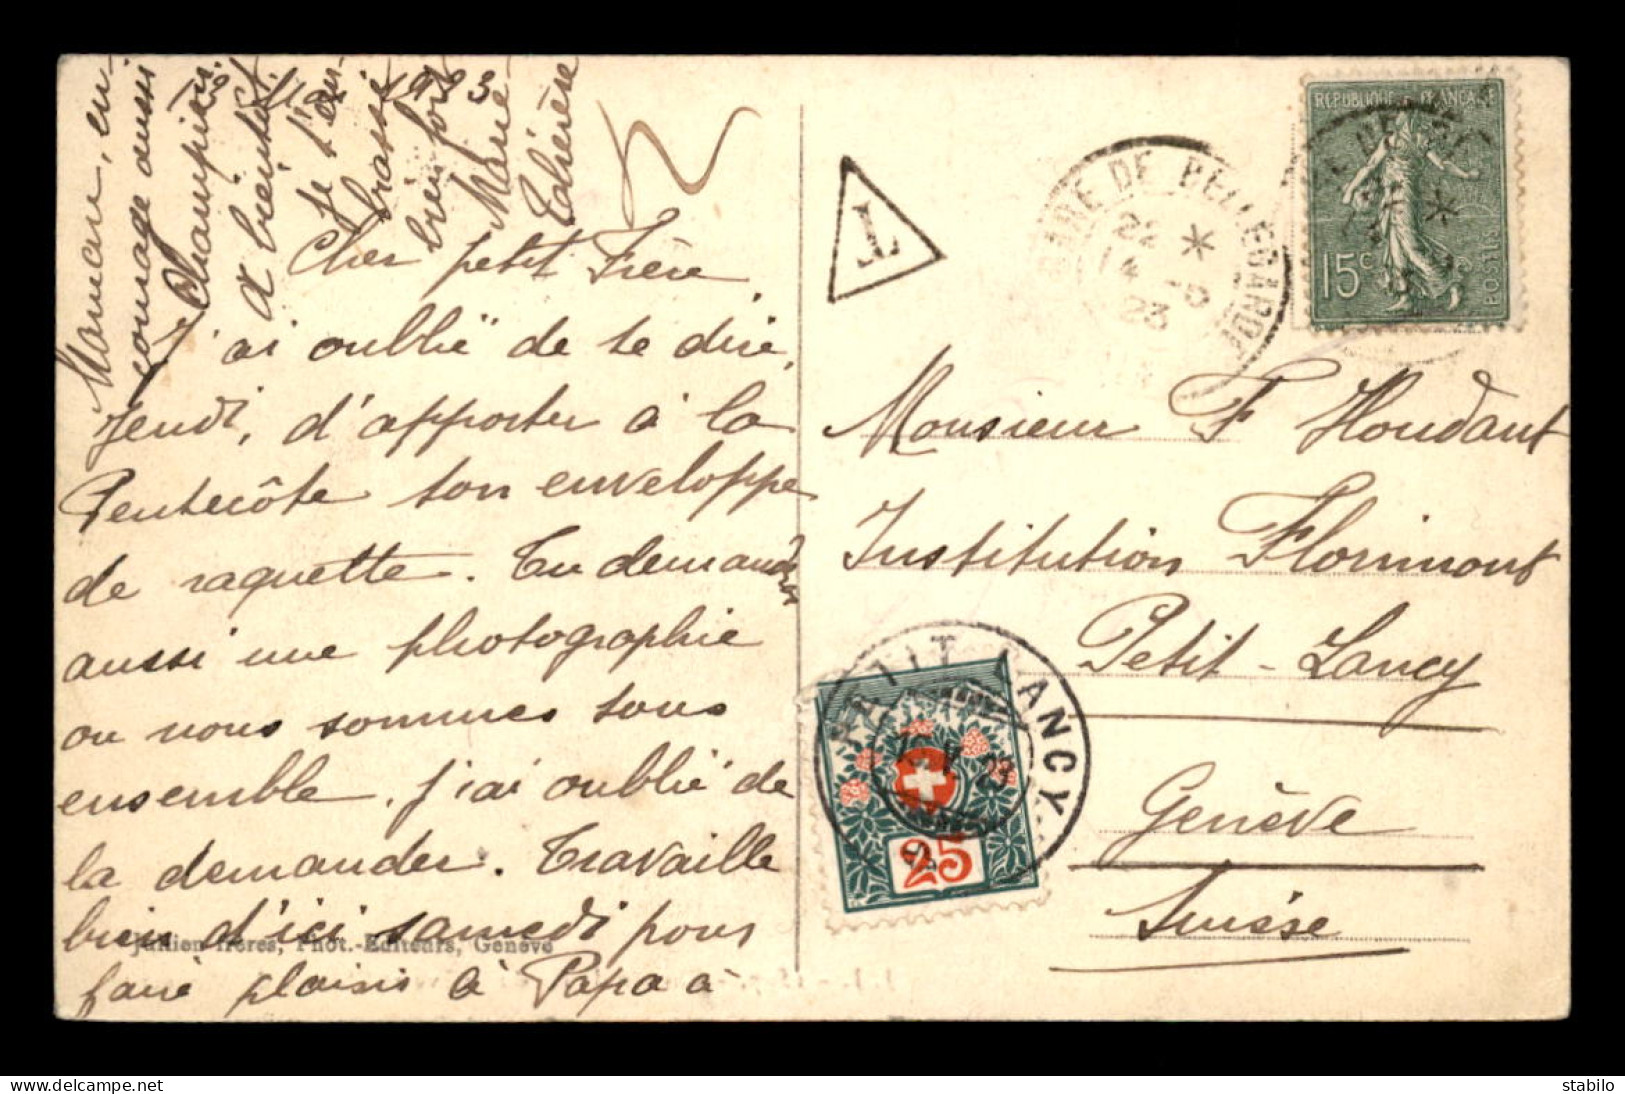 15 Mai 1923
Cher petit Frère
J'ai oublié de te dire,
Jeudi, d'apporter à la
Pentecôte ton enveloppe
de raquette. Tu demanderas
aussi une photographie
ou nous sommes tous
ensemble. J'ai oublié de
la demander. Travaille
bien d'ici samedi pour
faire plaisir à Papa à
Maman, en-
courage aussi
Champion.
à bientôt.
Je t'em-
brasse
bien fort
Marie
Thérèse
Jullien frères, Phot.-Editeurs, Genève
T
GARE DE BELLEGARDE
22 *
23
REPUBLIQUE FRANÇAISE
15c
POSTES
Monsieur F Houdant
Institution Florimont
Petit-Lancy
Genève
Suisse
PETIT LANCY
16.V.23
25
stabilo